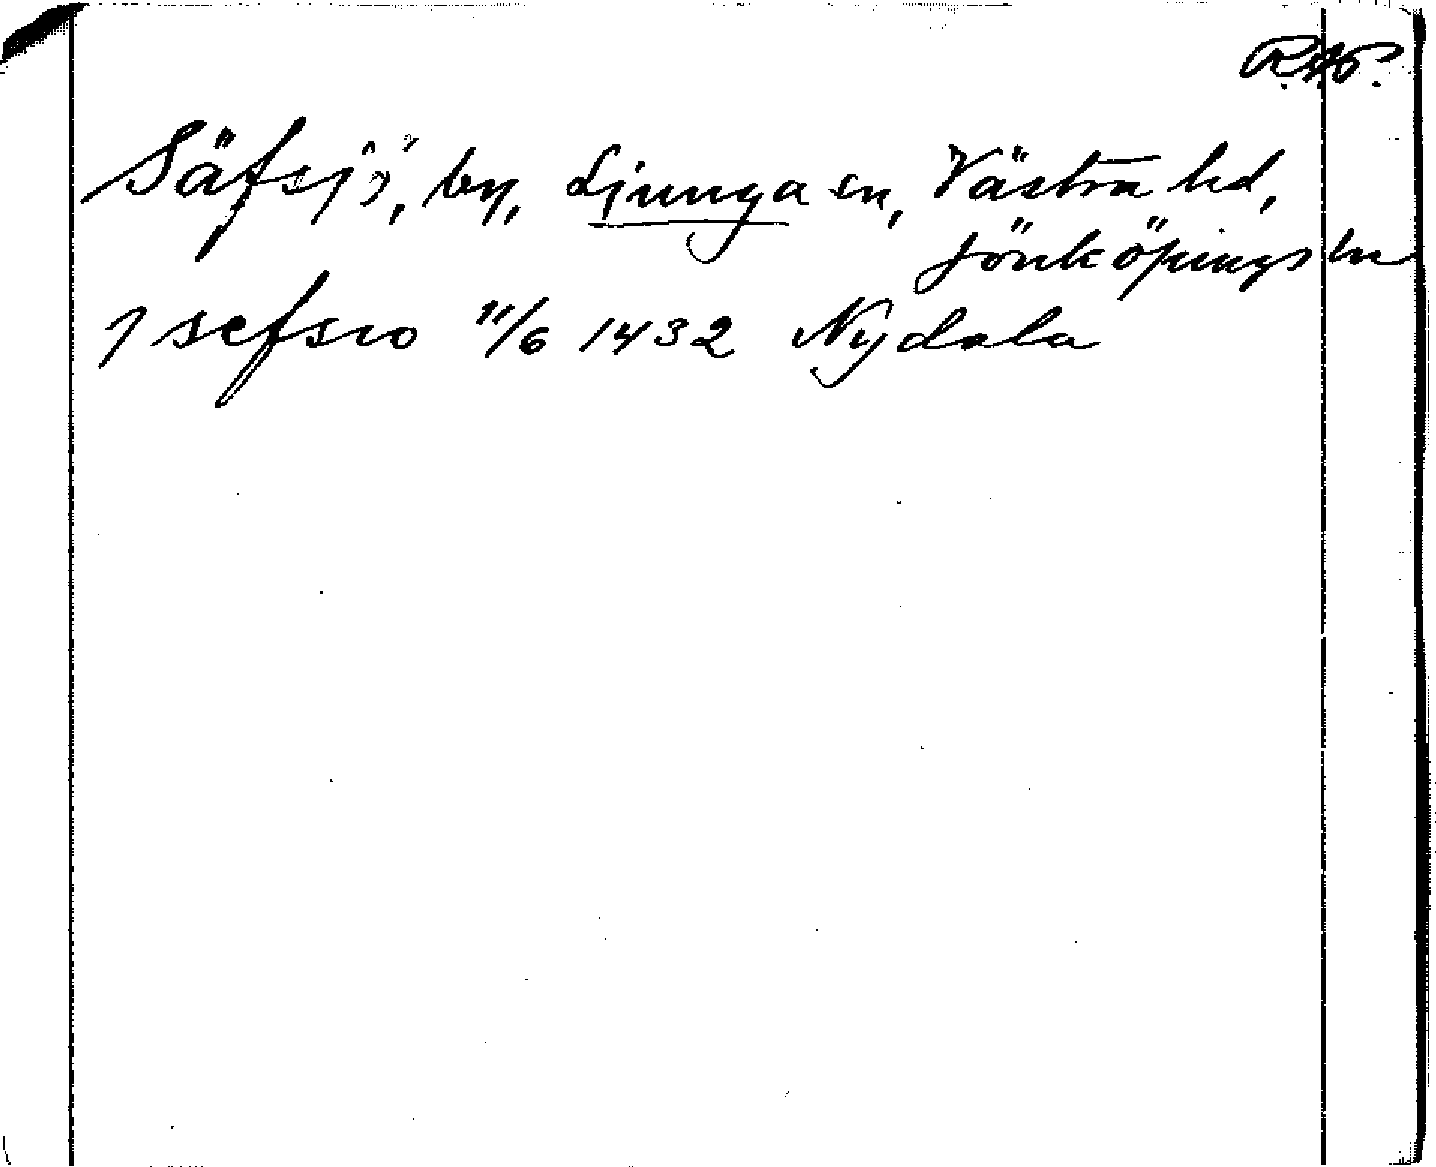 R.A.P.
Säfsjö, by, Ljunga sn, Västra hd,
Jönköpings ln
j sefsio 11/6 1432 Nydala